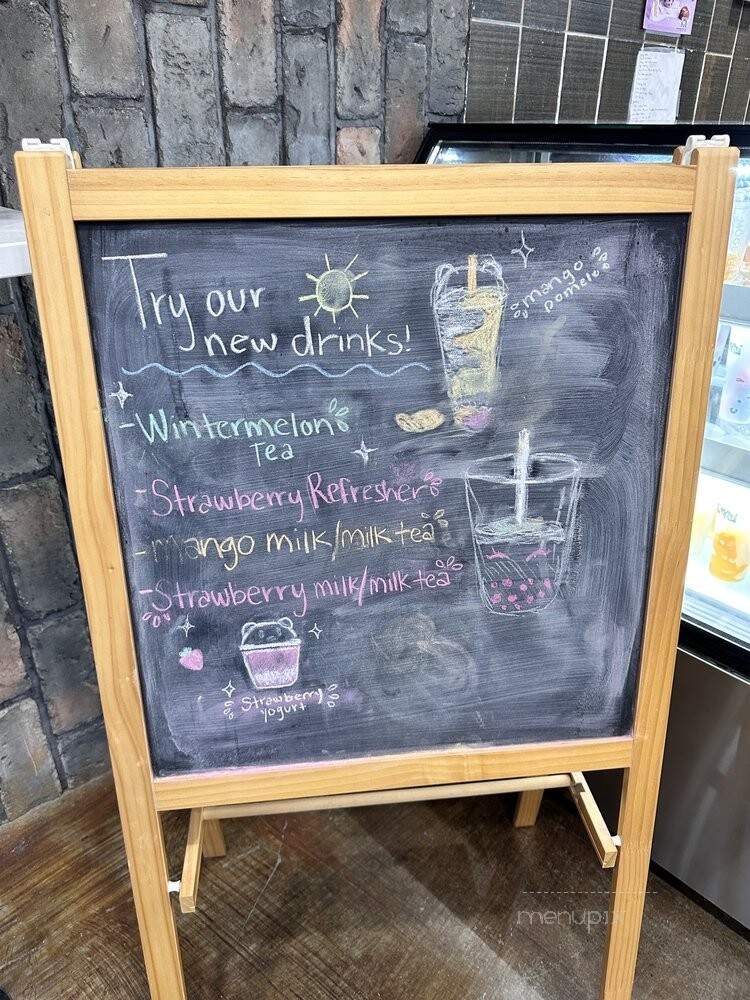 Try our
new drinks!
mango
pomelo
-Wintermelon
Tea
-Strawberry Refresher
-mango milk/milk tea
-Strawberry milk/milk tea
Strawberry
Yogurt
menupix